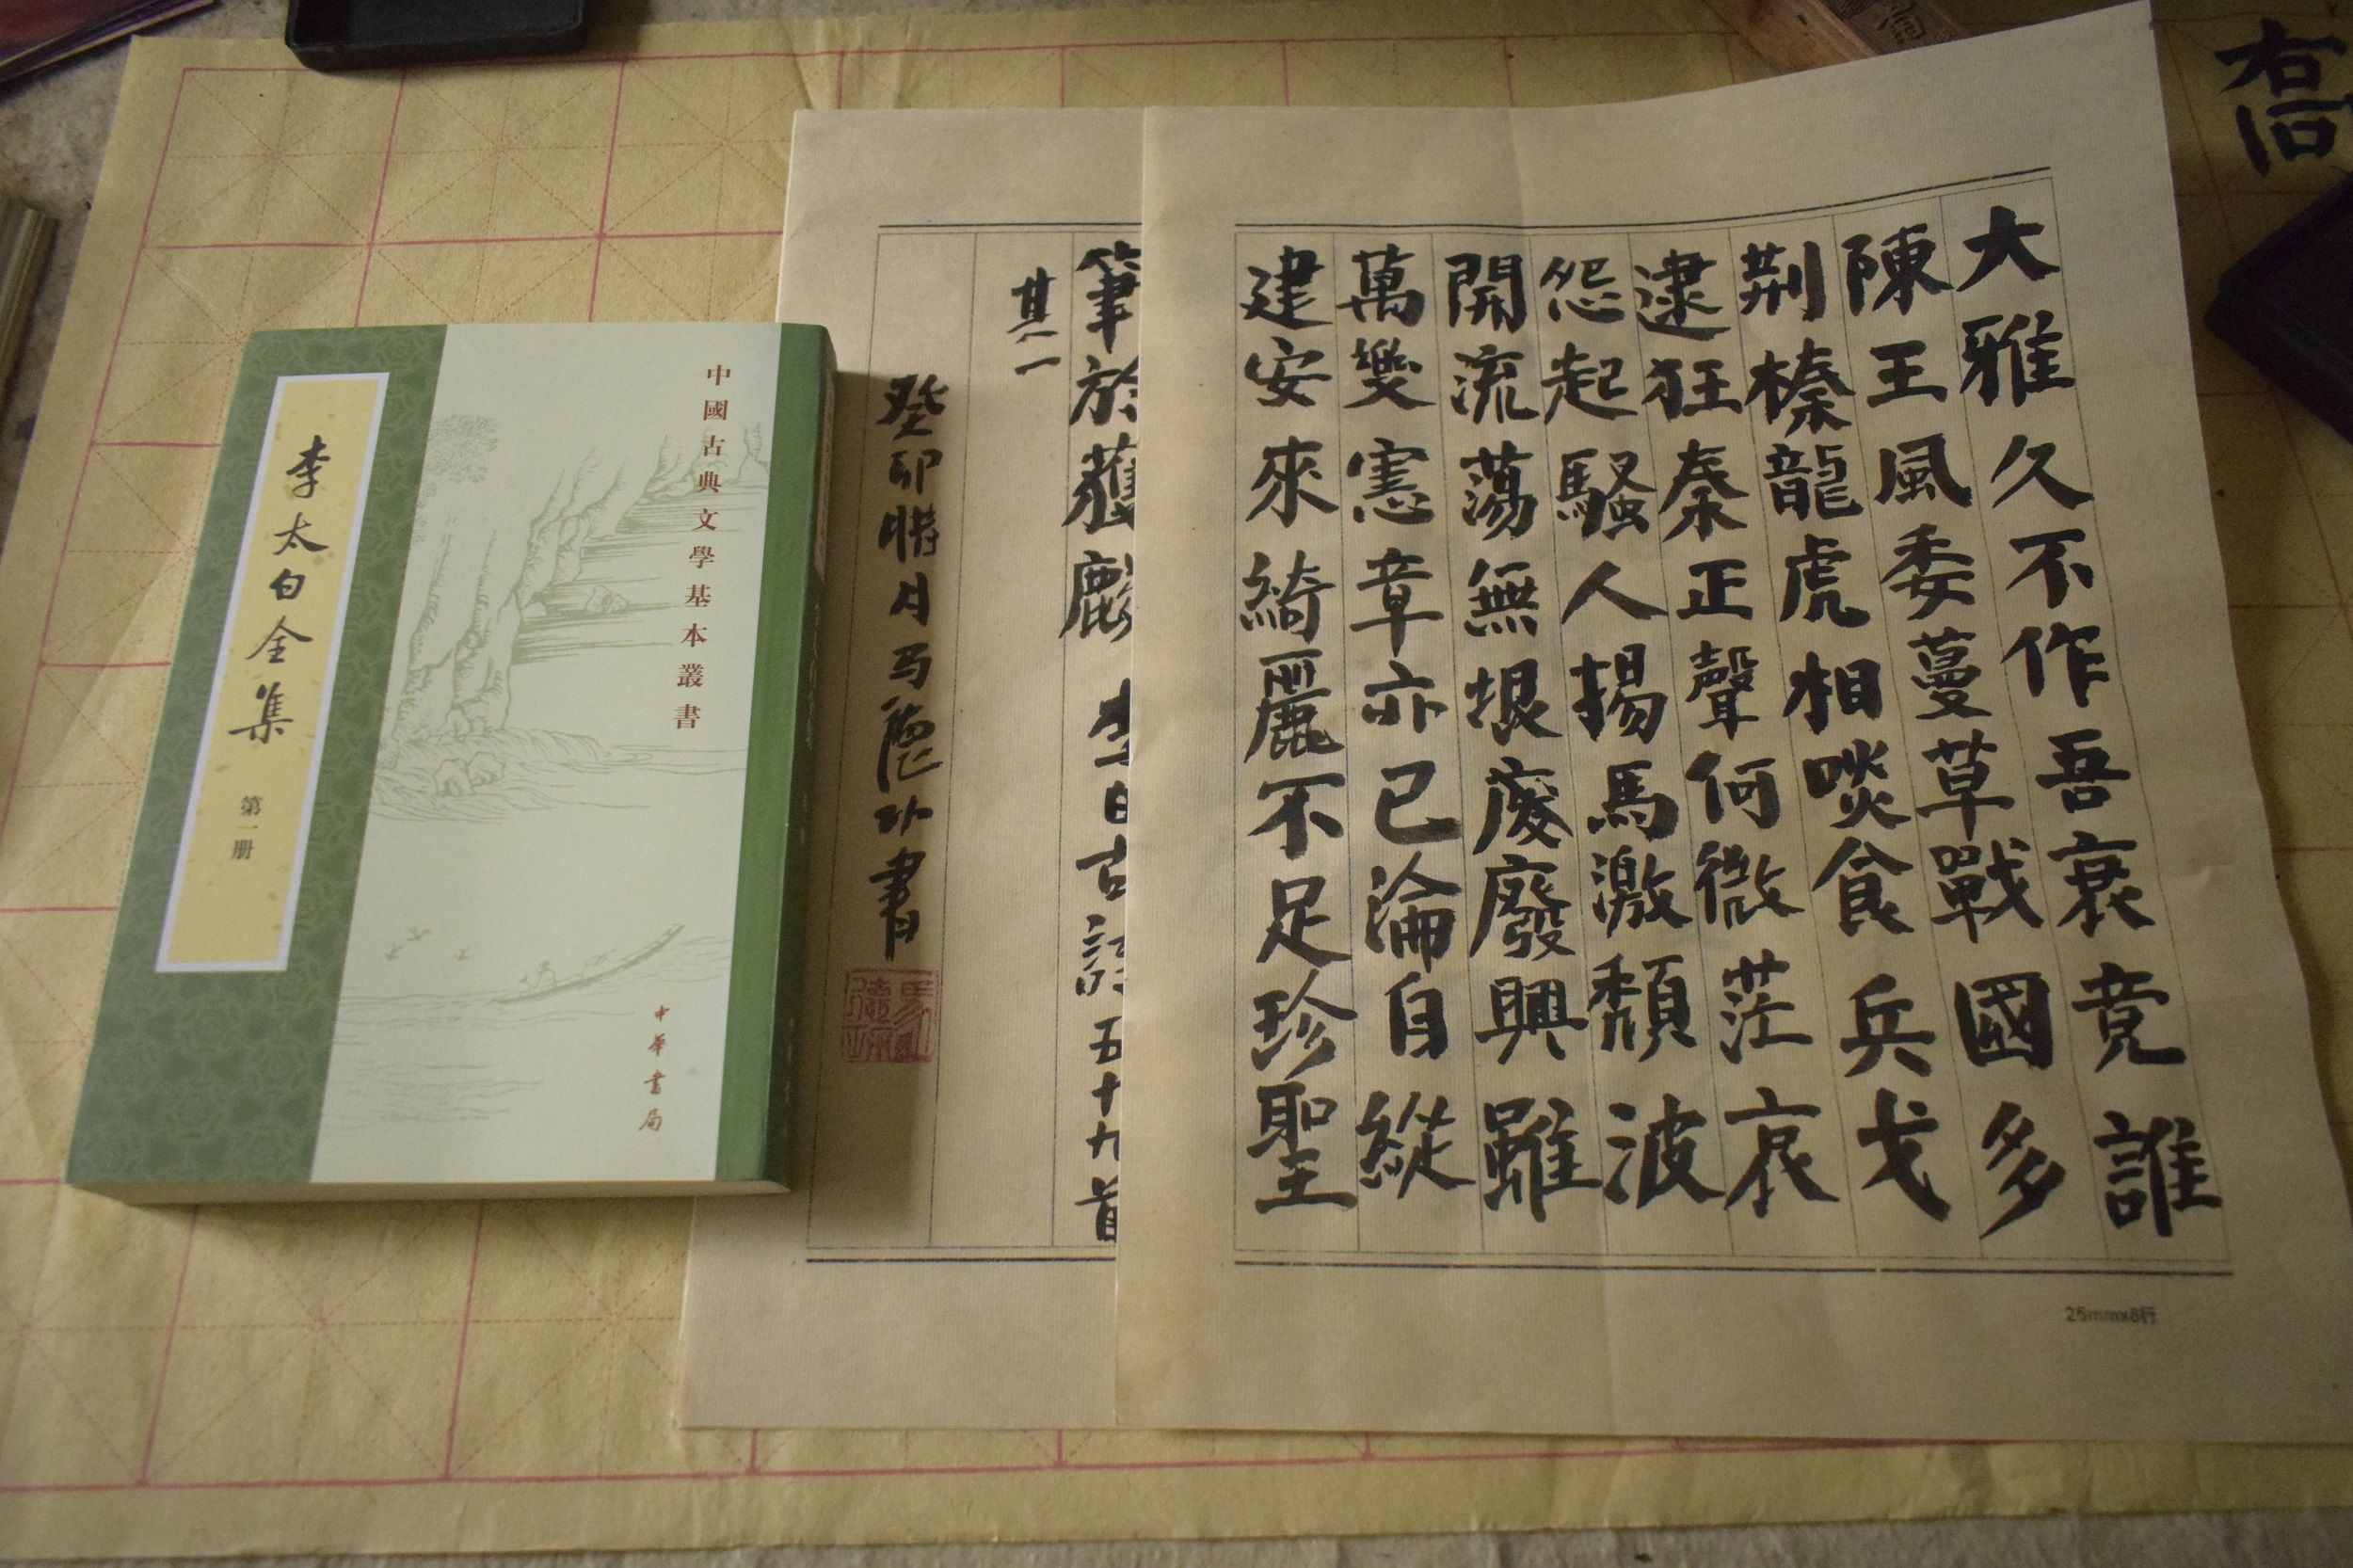 大雅久不作吾衰竟誰
陳王風委蔓草戰國多
荆榛龍虎相啖食兵戈
逮狂秦正聲何微茫哀
怨起騷人揚馬激頹波
開流蕩無垠废廢興雖
萬變憲章亦已淪自縱
建安來綺麗不足珍聖
25mmx8行
筆於獲麟 李白古詩五十九首
其一
癸卯腊月马德書
中國古典文學基本叢書
中華書局
李太白全集 第一册